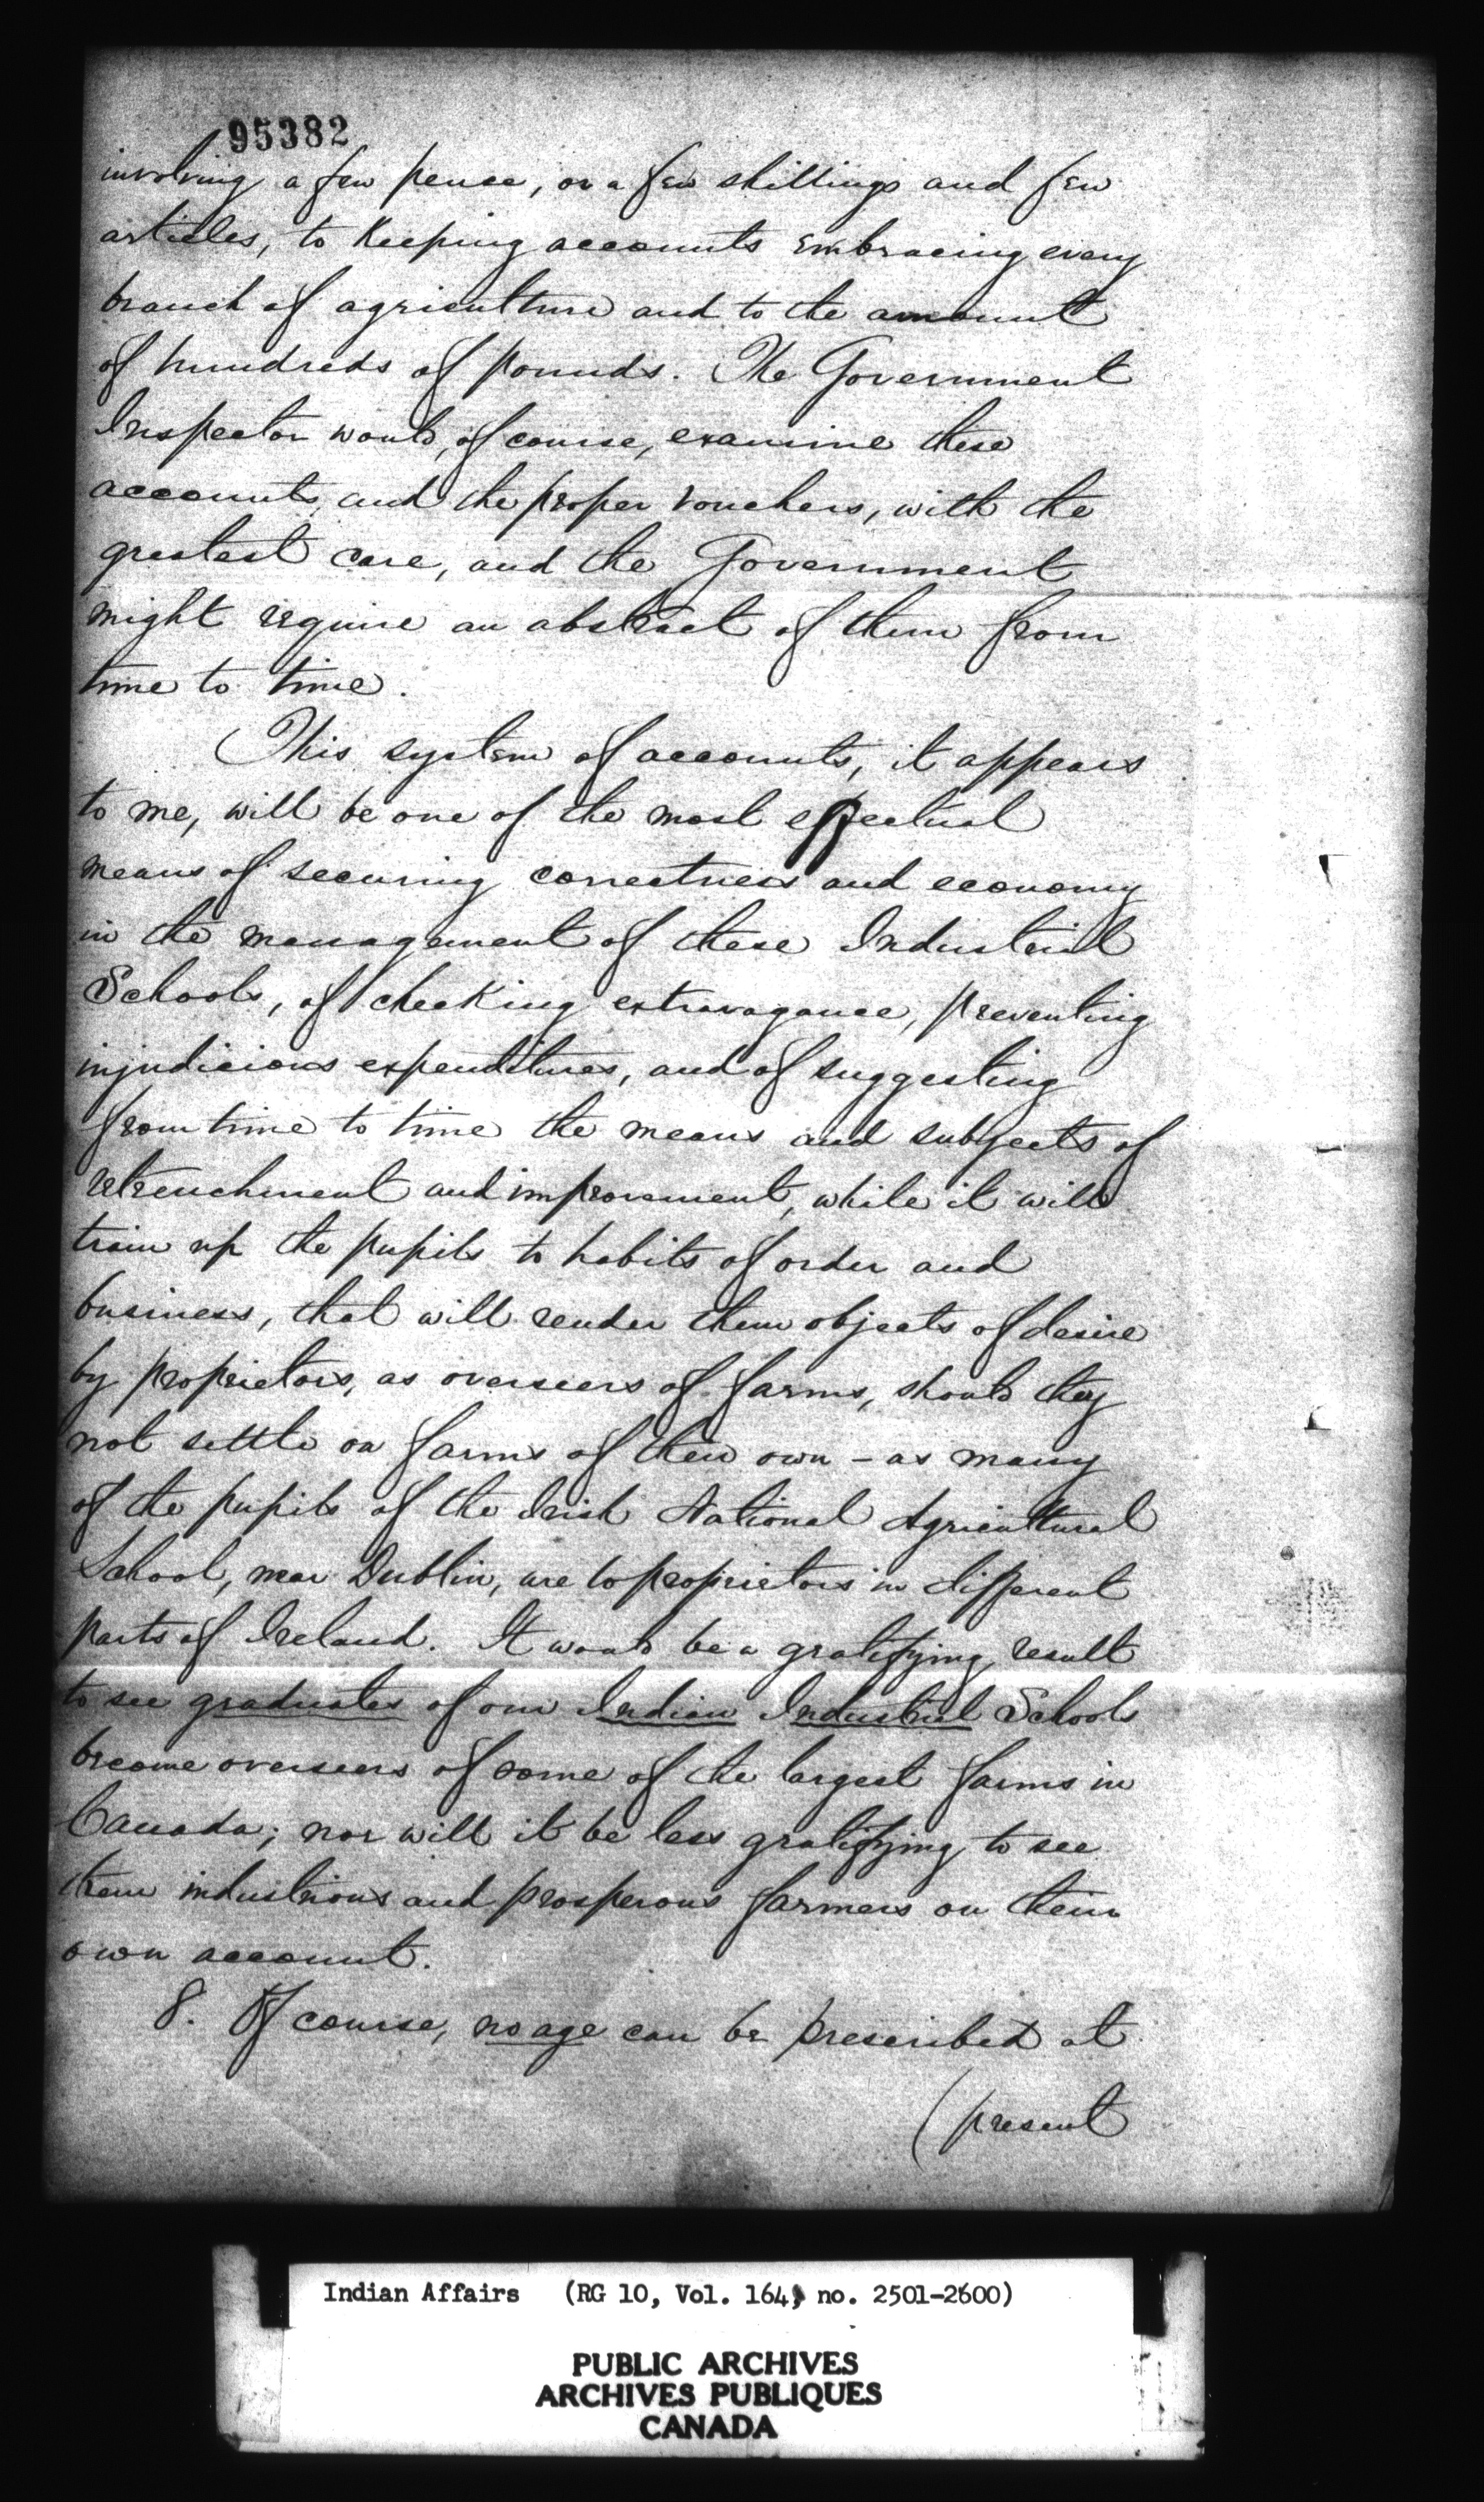 95382
involving a few pence, or a few shillings and few
articles, to Keeping accounts embracing every
branch of agriculture and to the amount
of hundreds of pounds. The Government
Inspector would, of course, examine these
accounts, and the proper vouchers, with the
greatest care, and the Government
might require an abstract of them from
time to time.
This system of accounts, it appears
to me, will be one of the most effectual
means of securing correctness and economy
in the management of these Industrial
Schools, of checking extravagance, preventing
injudicious expenditures, and of suggesting
from time to time the means and subjects of
retrenchment and improvement, while it will
train up the pupils to habits of order and
business, that will render them objects of desire
by proprietors, as overseers of farms, should they
not settle on farms of their own - as many
of the pupils of the Irish National Agricultural
School, near Dublin, are to proprietors in different
parts of Ireland. It would be a gratifying result
to see graduates of our Indian Industrial Schools
become overseers of some of the largest farms in
Canada; nor will it be less gratifying to see
them industrious and prosperous farmers on their
own account.
8. Of course, no age can be prescribed at
(present
Indian Affairs (RG 10, Vol. 164, no. 2501-2600)
PUBLIC ARCHIVES
ARCHIVES PUBLIQUES
CANADA